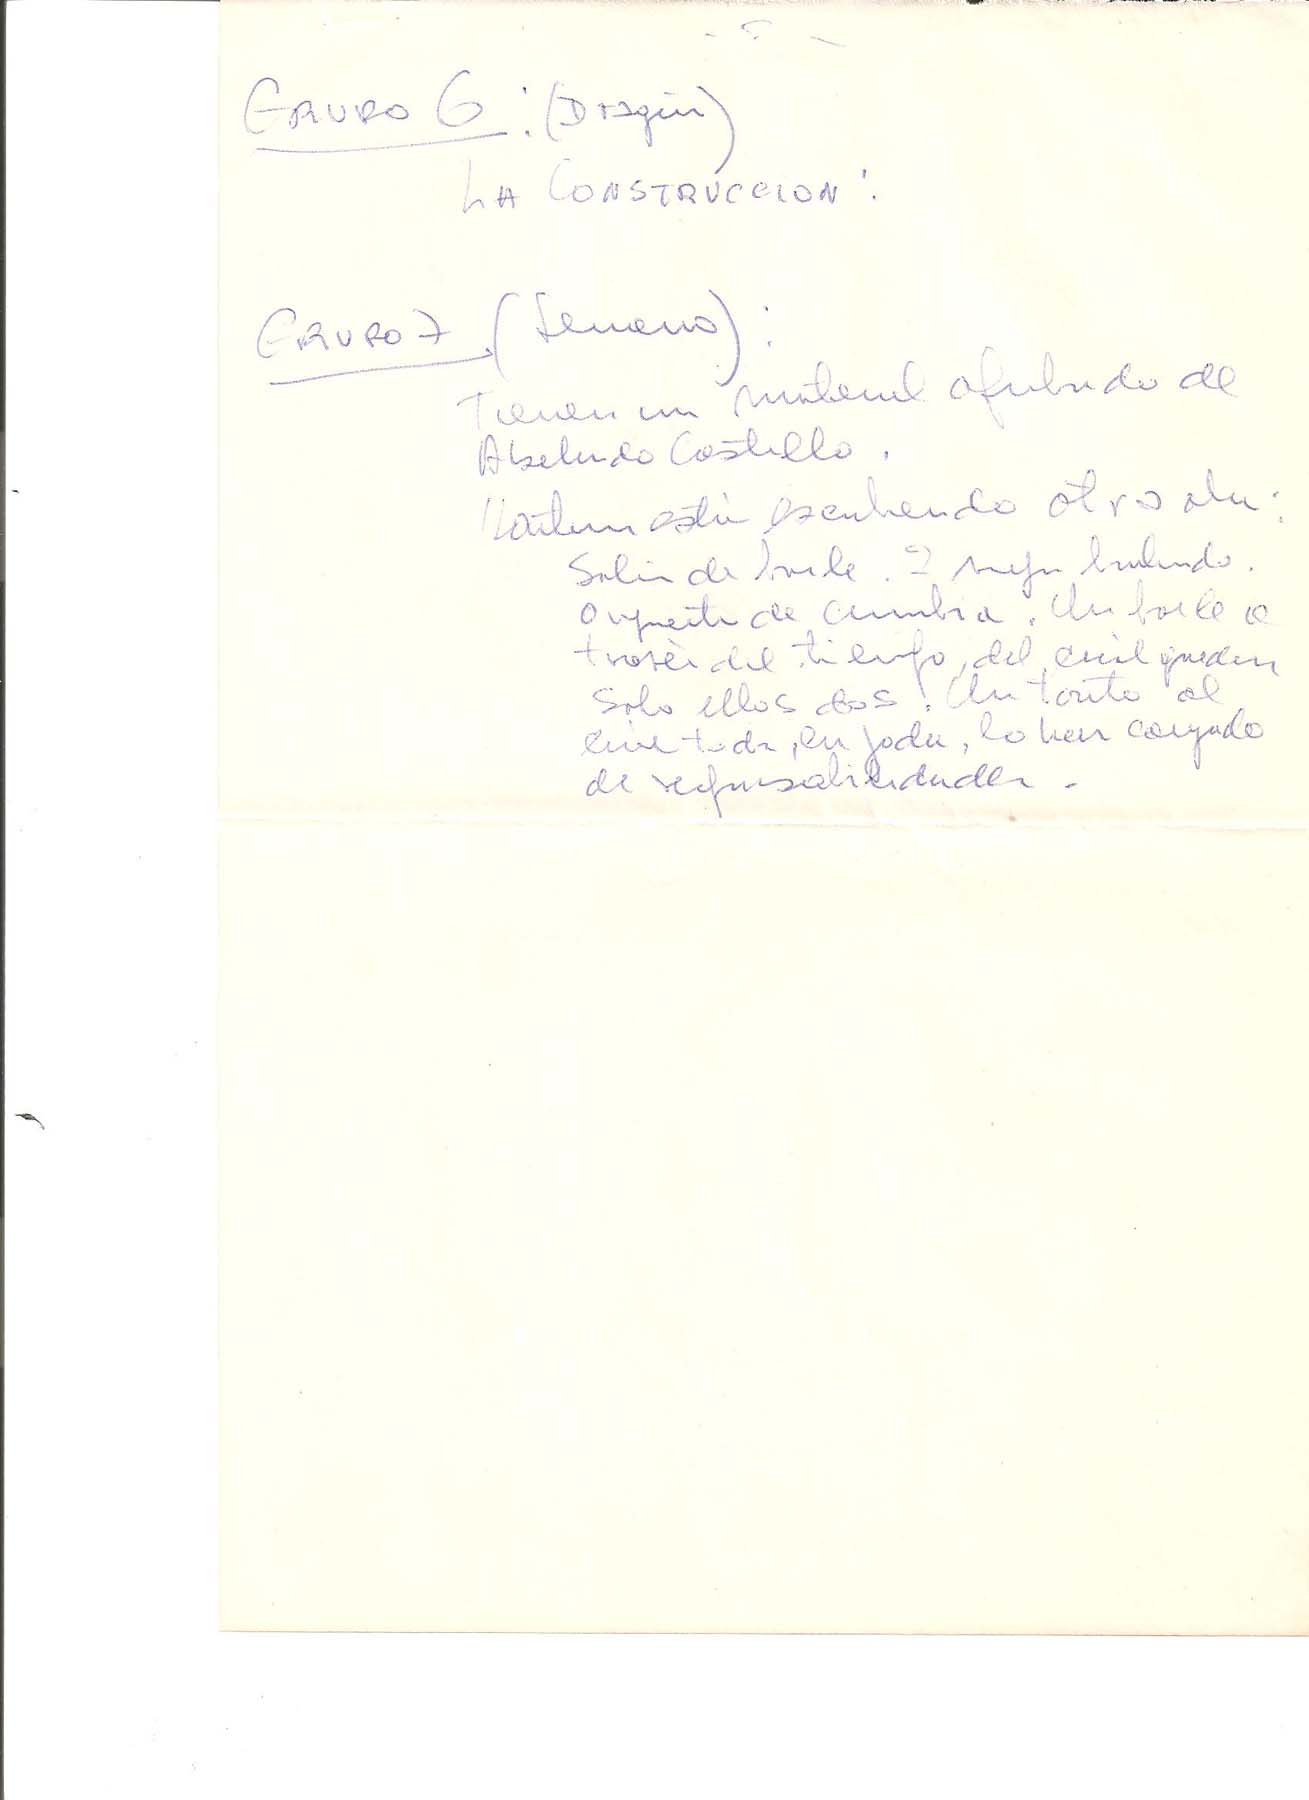 - 5 -
GRUPO 6 : (Dragún)
LA CONSTRUCCION :
GRUPO 7 (Serrano) :
Tienen un material de
Abelardo Castillo .
está escribiendo otra :
Salón de baile . 2 bailando .
Orquesta de cumbia . Un baile a
través del tiempo, del cual quedan
solo ellos dos . Un tonto al
cual toda, en joda, lo han cargado
de responsabilidades .